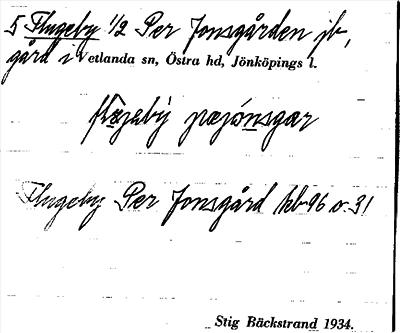 5 Flugeby 1/2 Per Jonsgården jb,
gård i Vetlanda sn, Östra hd, Jönköpings l.
pæjónsgær
Flugeby Per Jonsgård kb 96 o. 31
Stig Bäckstrand 1934.